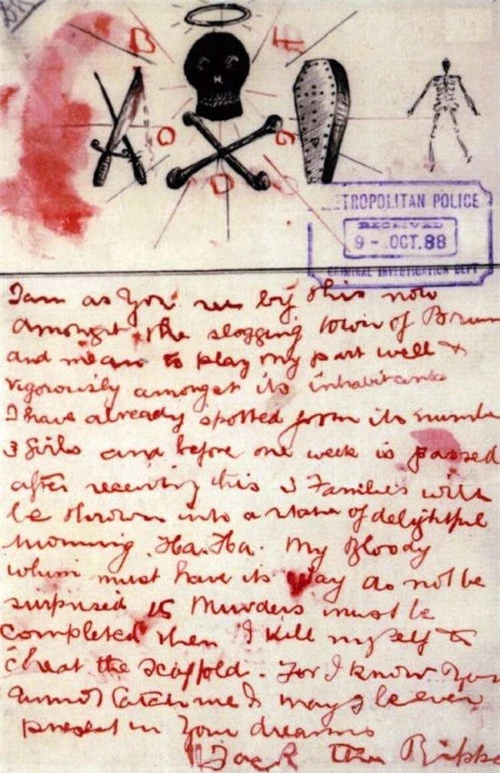 TROPOLITAN POLICE
RECEIVED
9 - OCT. 88
CRIMINAL INVESTIGATION DEPT
I am as you see by this now
amongst the slogging town of Brum
and mean to play my part well &
vigorously amongst its inhabitants
I have already spotted from its numbe
3 Girls and before one week is passed
after receiving this 3 Families will
be thrown into a state of delightful
mourning. Ha. Ha. My Bloody
whim must have its way do not be
surprised 15 Murders must be
completed then I kill myself to
cheat the scaffold. For I know you
cannot catch me & I may be ever
present in your dreams
Jack the Ripp